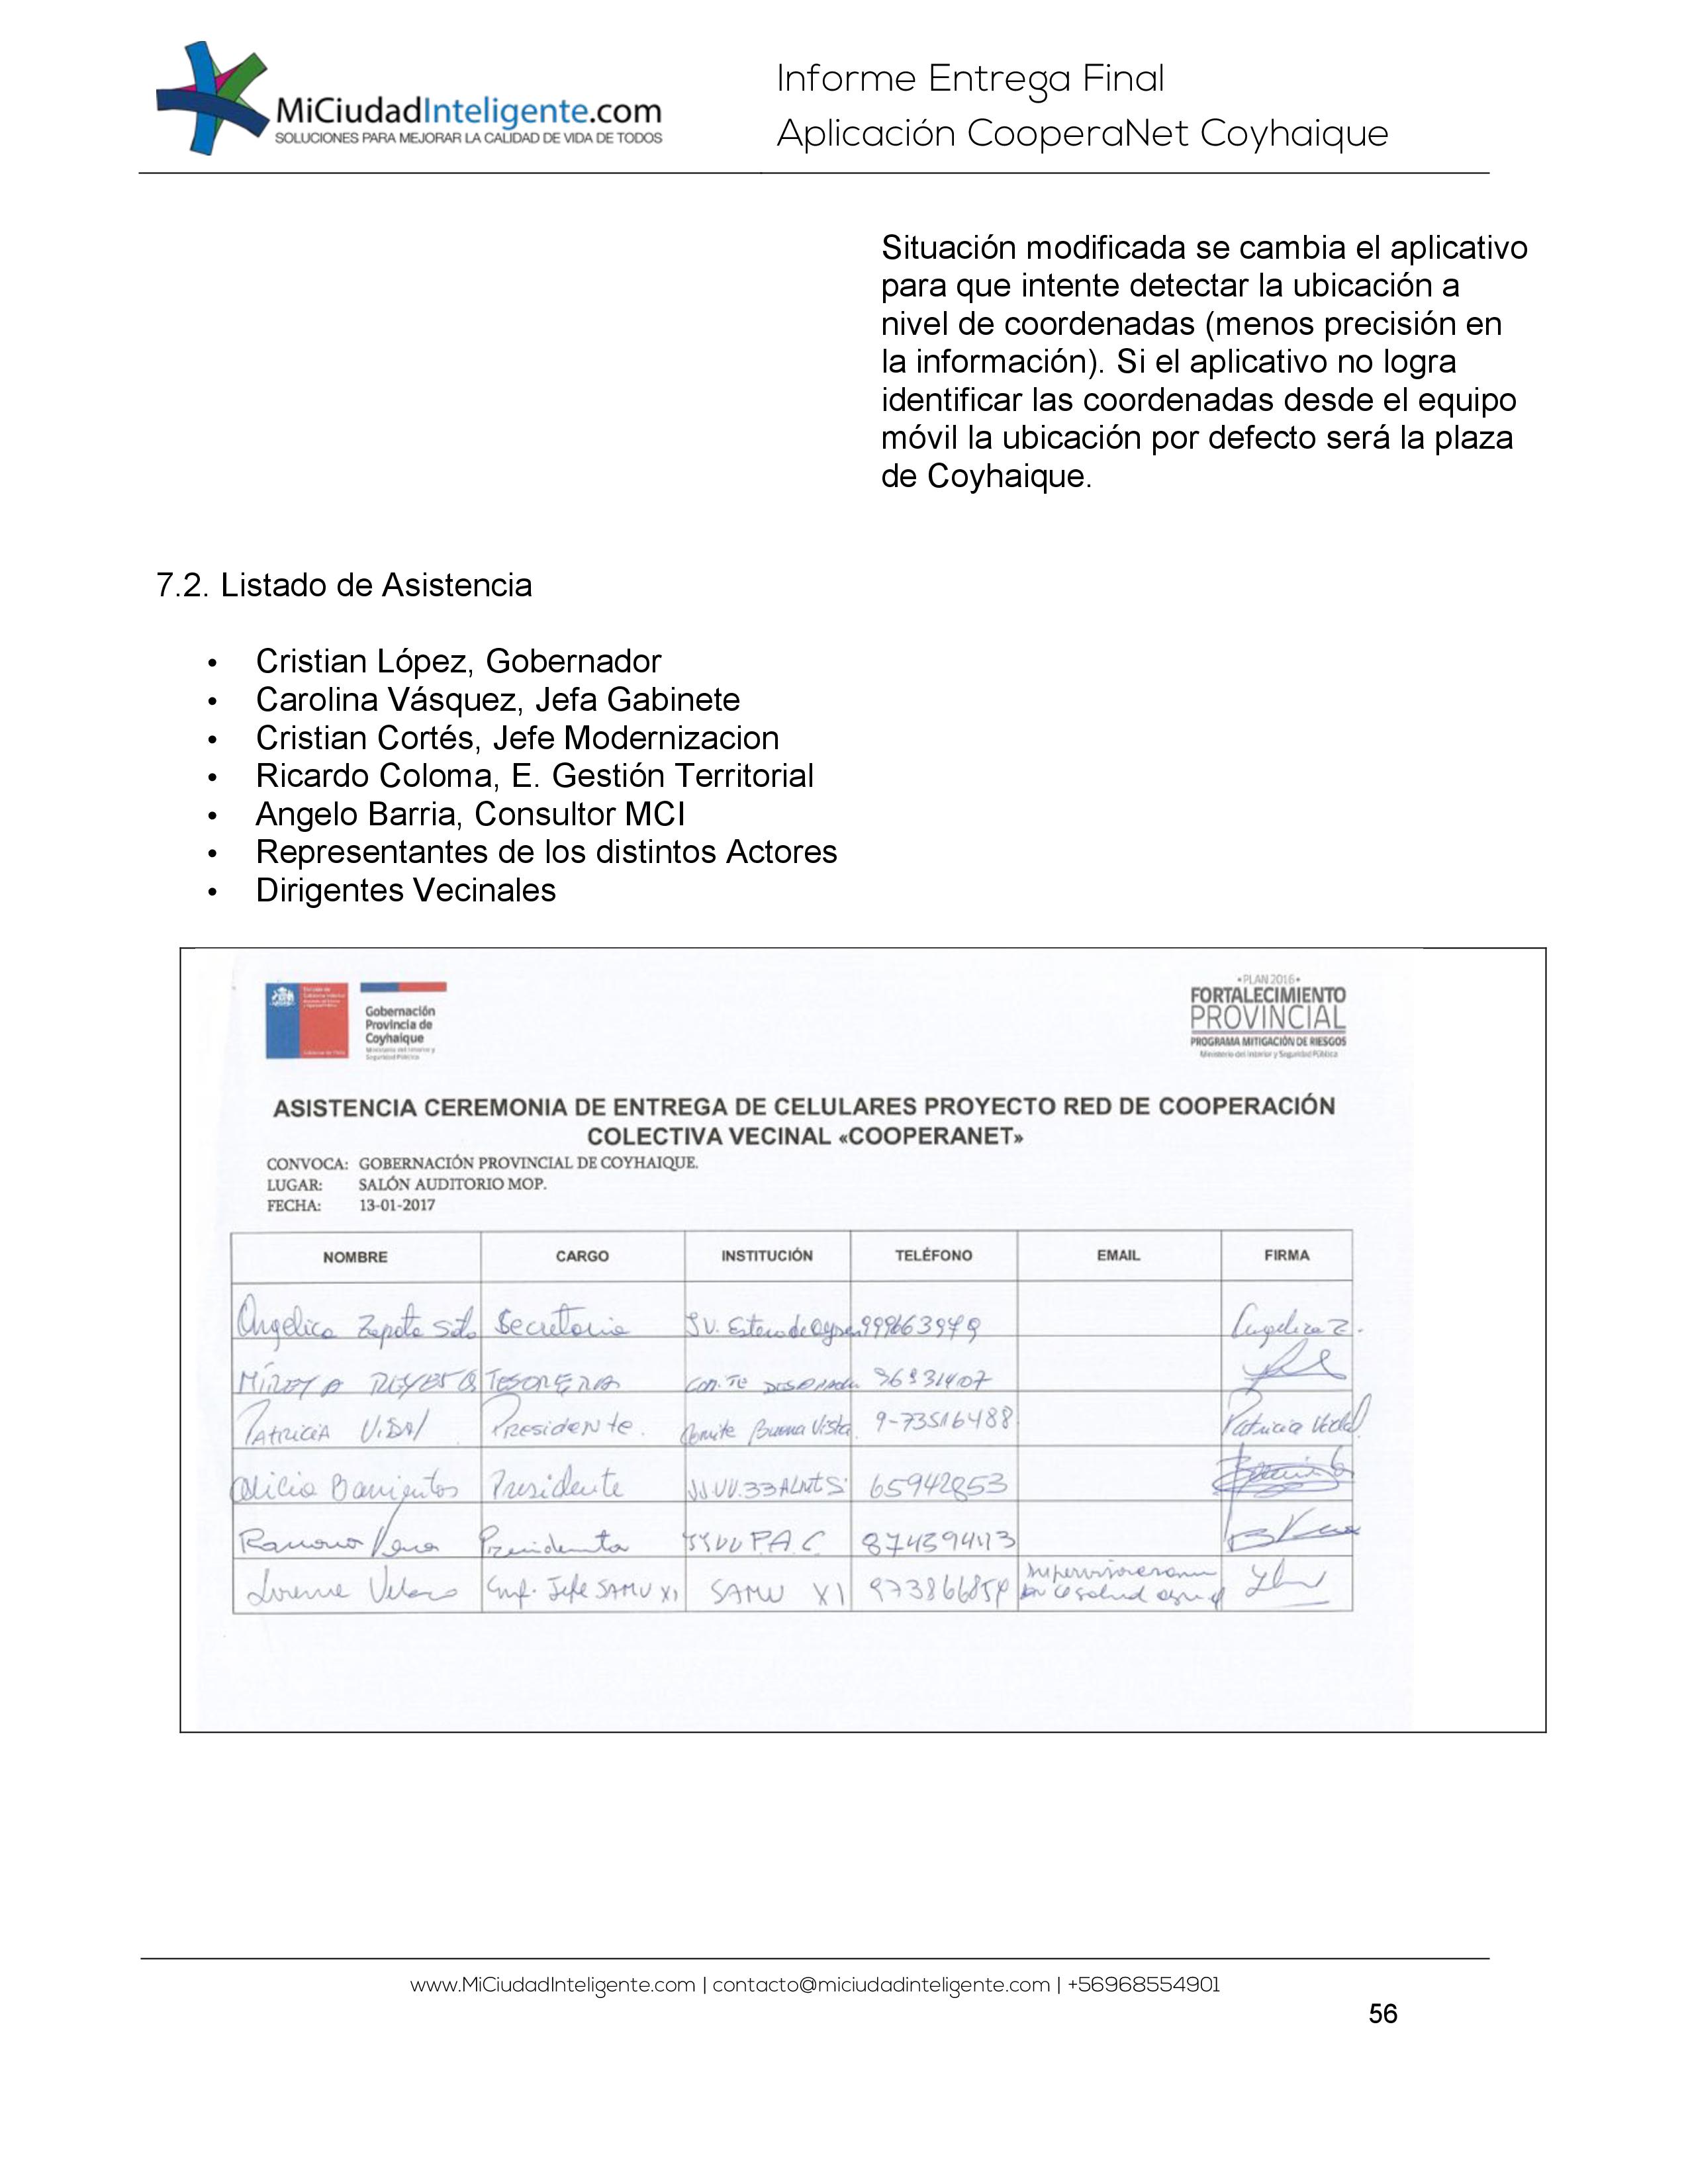 MiCiudadInteligente.com
SOLUCIONES PARA MEJORAR LA CALIDAD DE VIDA DE TODOS
Informe Entrega Final
Aplicación CooperaNet Coyhaique
Situación modificada se cambia el aplicativo
para que intente detectar la ubicación a
nivel de coordenadas (menos precisión en
la información). Si el aplicativo no logra
identificar las coordenadas desde el equipo
móvil la ubicación por defecto será la plaza
de Coyhaique.
7.2. Listado de Asistencia
• Cristian López, Gobernador
• Carolina Vásquez, Jefa Gabinete
• Cristian Cortés, Jefe Modernizacion
• Ricardo Coloma, E. Gestión Territorial
• Angelo Barria, Consultor MCI
• Representantes de los distintos Actores
• Dirigentes Vecinales
Gobernación
Provincia de
Coyhaique
Ministerio del Interior y
Seguridad Pública
•PLAN 2016•
FORTALECIMIENTO
PROVINCIAL
PROGRAMA MITIGACIÓN DE RIESGOS
Ministerio del Interior y Seguridad Pública
ASISTENCIA CEREMONIA DE ENTREGA DE CELULARES PROYECTO RED DE COOPERACIÓN
COLECTIVA VECINAL «COOPERANET»
CONVOCA: GOBERNACIÓN PROVINCIAL DE COYHAIQUE.
LUGAR: SALÓN AUDITORIO MOP.
FECHA: 13-01-2017
NOMBRE CARGO INSTITUCIÓN TELÉFONO EMAIL FIRMA
Angelica Zapata Soto Secretaria JV. Estero de Angelica Z.
MIREYA REYES TESORERA 96831407
PATRICIA VIDAL PRESIDENTE. Comite Buena Vista. 9-73516488 Patricia Vidal
Alicia Barrientos Presidente JJ.VV.33 65942853
Ramona Vera Presidenta JJVV P.A.C
Lorena Enf. Jefe SAMU XI SAMU XI
www.MiCiudadInteligente.com | contacto@miciudadinteligente.com | +56968554901
56